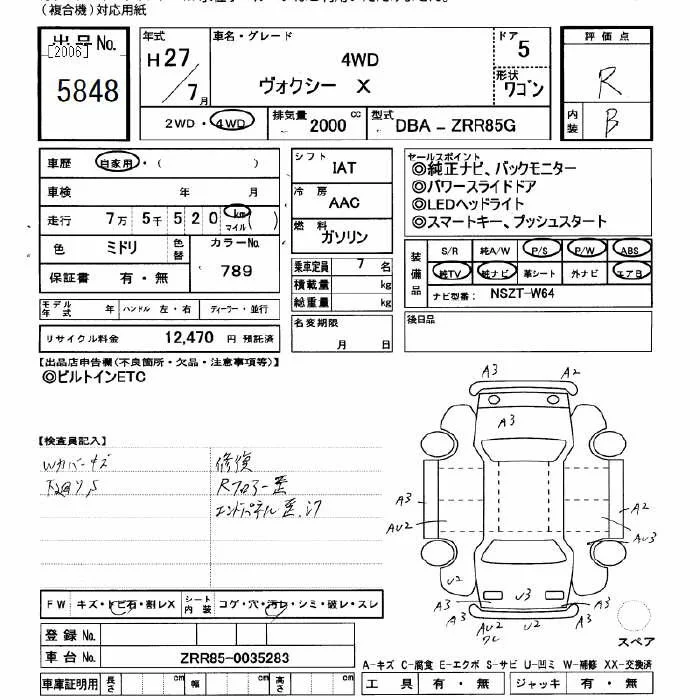 (複合機)対応用紙
出品No.
[2006]
5848
年式
H27/7月
車名・グレード
4WD
ヴォクシー X
ドア
5
形状
ワゴン
評価点
R
内装
B
2WD・4WD
排気量 2000 cc
型式 DBA-ZRR85G
車歴 自家用・( )
車検 年 月
走行 7万 5千 5 2 0 km マイル ( )
色 ミドリ
色替
カラーNo.
789
保証書 有・無
シフト
IAT
冷房
AAC
燃料
ガソリン
乗車定員 7 名
積載量 kg
総重量 kg
セールスポイント
◎純正ナビ、バックモニター
◎パワースライドドア
◎LEDヘッドライト
◎スマートキー、プッシュスタート
装備品
S/R 純A/W P/S P/W ABS
純TV 純ナビ 革シート 外ナビ エアB
ナビ型番: NSZT-W64
モデル年式 年 ハンドル 左・右 ディーラー・並行
リサイクル料金 12,470 円 預託済
名変期限
月 日
後日品
【出品店申告欄(不良箇所・欠品・注意事項等)】
◎ビルトインETC
【検査員記入】
Wカバーキズ
修復
Rフロアー歪
エンドパネル歪、
A3 A2
A3
A3 A2
AU2 AU3
U2 U3
A3 A3 A3
AU2 U2
FW キズ・トビ石・割レX シート内装 コゲ・穴・汚レ・シミ・破レ・スレ
スペア
登録No.
車台No. ZRR85-0035283
A-キズ C-腐食 E-エクボ S-サビ U-凹ミ W-補修 XX-交換済
車庫証明用 長さ cm 幅 cm 高さ cm
工具 有・無 ジャッキ 有・無